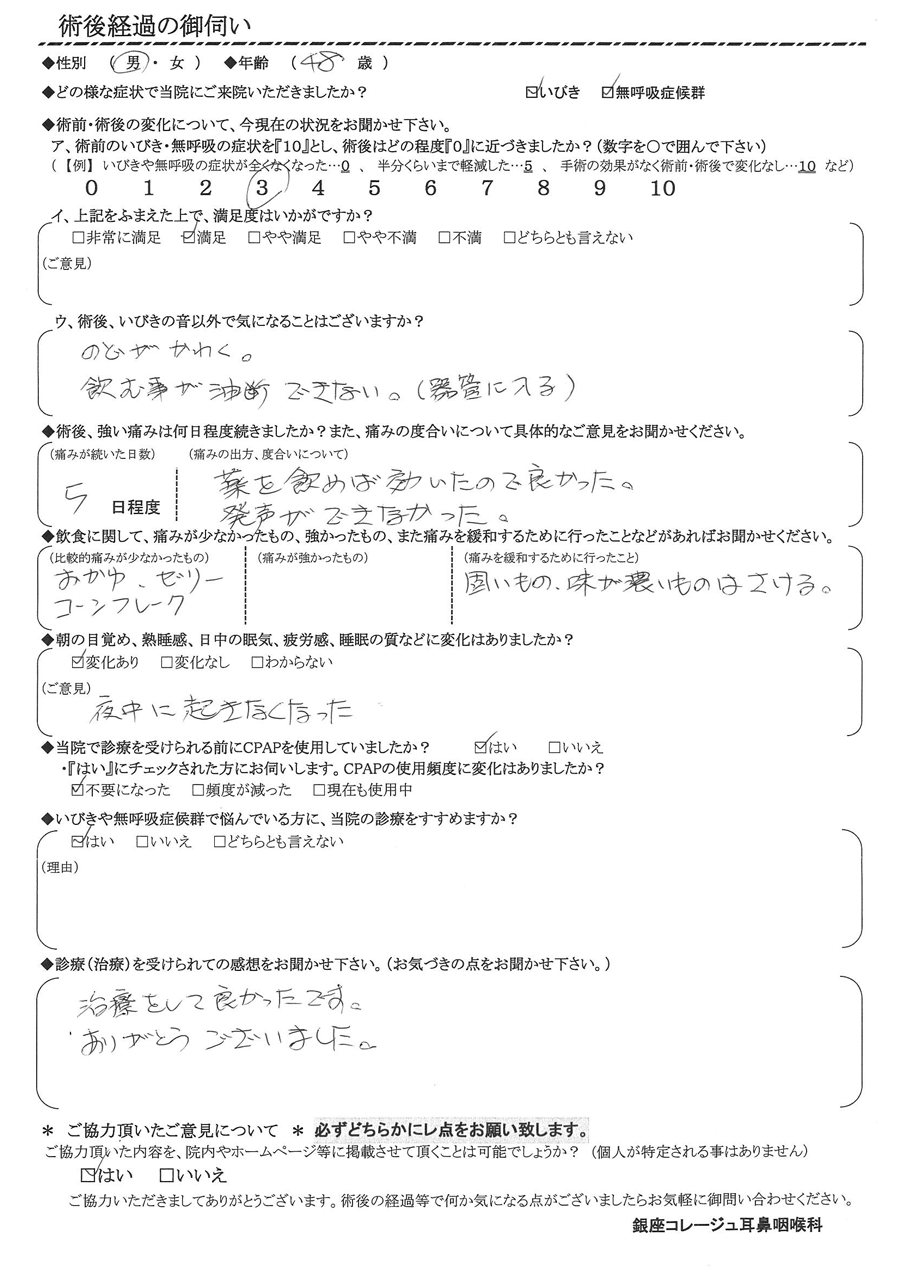 術後経過の御伺い
◆性別 ( 男 ・ 女 ) ◆年齢 ( 48 歳 )
◆どの様な症状で当院にご来院いただきましたか? ☑いびき ☑無呼吸症候群
◆術前・術後の変化について、今現在の状況をお聞かせ下さい。
ア、術前のいびき・無呼吸の症状を『10』とし、術後はどの程度『0』に近づきましたか?(数字を○で囲んで下さい)
(【例】 いびきや無呼吸の症状が全くなくなった…0 、 半分くらいまで軽減した…5 、 手術の効果がなく術前・術後で変化なし…10 など)
0 1 2 3 4 5 6 7 8 9 10
イ、上記をふまえた上で、満足度はいかがですか?
□非常に満足 ☑満足 □やや満足 □やや不満 □不満 □どちらとも言えない
(ご意見)
ウ、術後、いびきの音以外で気になることはございますか?
のどがかわく。
飲む事が油断できない。(器管に入る)
◆術後、強い痛みは何日程度続きましたか?また、痛みの度合いについて具体的なご意見をお聞かせください。
(痛みが続いた日数) (痛みの出方、度合いについて)
5 日程度 薬を飲めば効いたので良かった。
発声ができなかった。
◆飲食に関して、痛みが少なかったもの、強かったもの、また痛みを緩和するために行ったことなどがあればお聞かせください。
(比較的痛みが少なかったもの) (痛みが強かったもの) (痛みを緩和するために行ったこと)
おかゆ、ゼリー 固いもの、味が濃いものはさける。
コーンフレーク
◆朝の目覚め、熟睡感、日中の眠気、疲労感、睡眠の質などに変化はありましたか?
☑変化あり □変化なし □わからない
(ご意見)
夜中に起きなくなった
◆当院で診療を受けられる前にCPAPを使用していましたか? ☑はい □いいえ
・『はい』にチェックされた方にお伺いします。CPAPの使用頻度に変化はありましたか?
☑不要になった □頻度が減った □現在も使用中
◆いびきや無呼吸症候群で悩んでいる方に、当院の診療をすすめますか?
☑はい □いいえ □どちらとも言えない
(理由)
◆診療(治療)を受けられての感想をお聞かせ下さい。(お気づきの点をお聞かせ下さい。)
治療をして良かったです。
ありがとうございました。
＊ ご協力頂いたご意見について ＊ 必ずどちらかにレ点をお願い致します。
ご協力頂いた内容を、院内やホームページ等に掲載させて頂くことは可能でしょうか? (個人が特定される事はありません)
☑はい □いいえ
ご協力いただきましてありがとうございます。術後の経過等で何か気になる点がございましたらお気軽に御問い合わせください。
銀座コレージュ耳鼻咽喉科